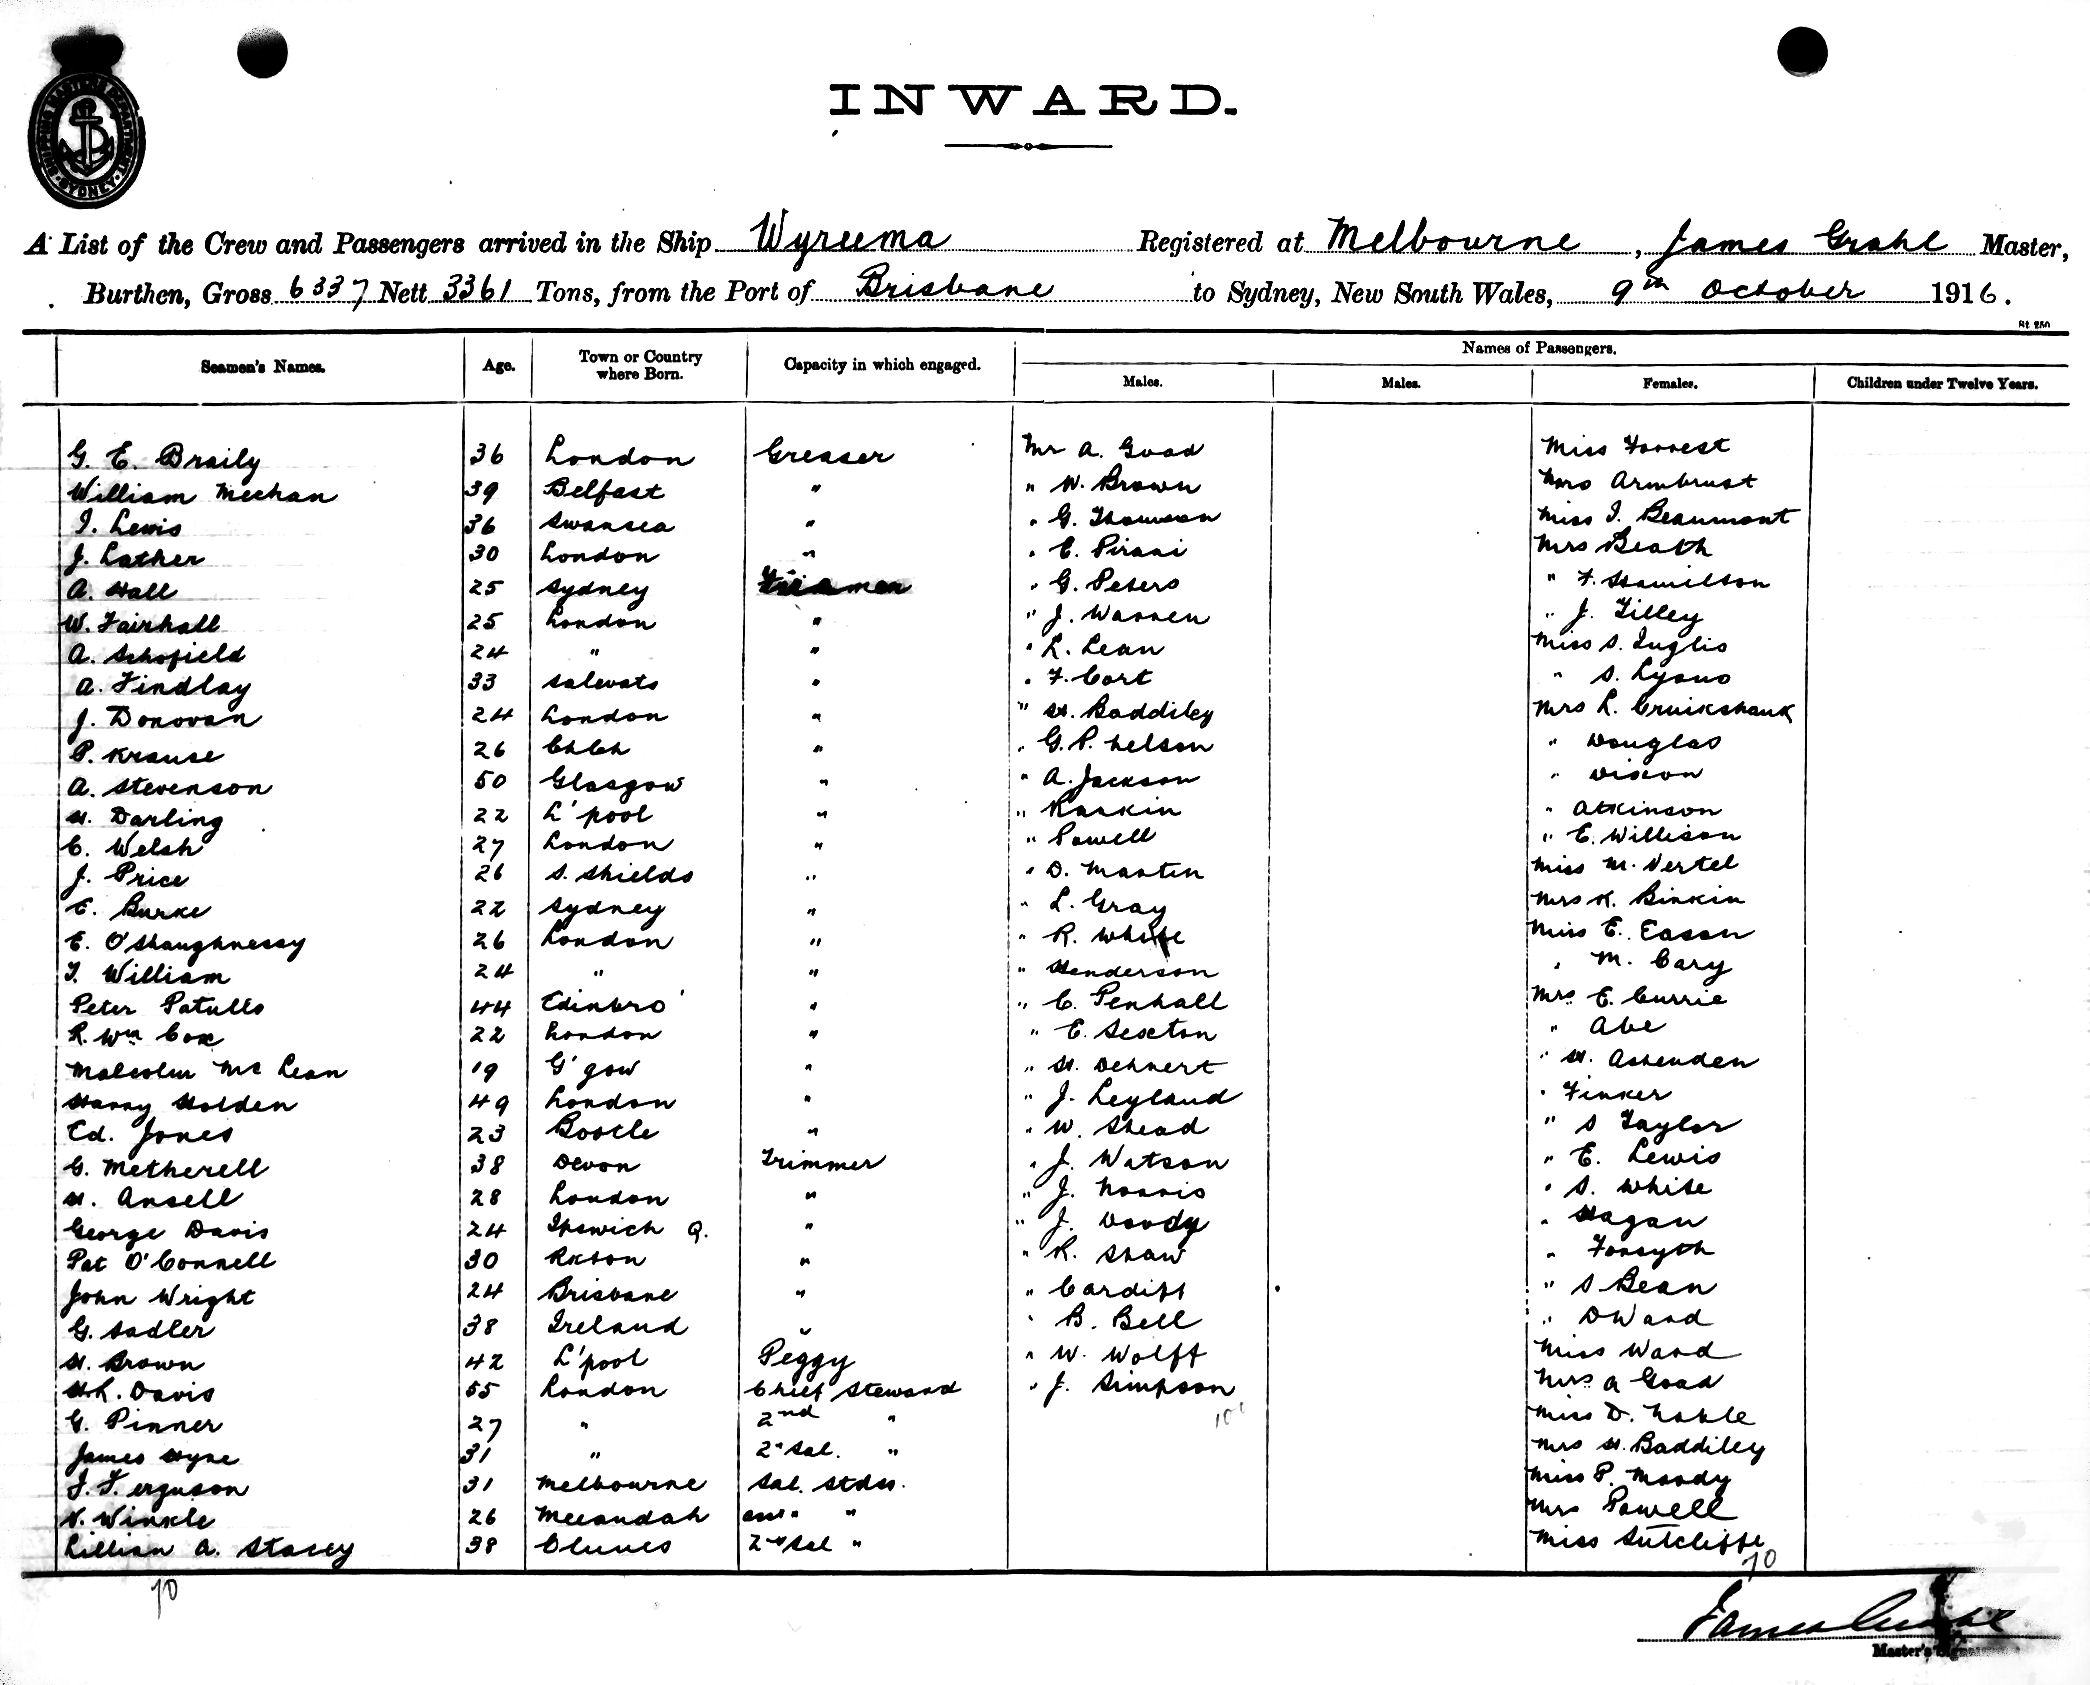 SHIPPING MASTER'S DEPARTMENT
SYDNEY
INWARD.
A List of the Crew and Passengers arrived in the Ship Wyreema Registered at Melbourne, James Grahl Master,
Burthen, Gross 6337 Nett 3361 Tons, from the Port of Brisbane to Sydney, New South Wales, 9th October 1916.
St 250
Names of Passengers.
Seamen's Names. Age. Town or Country where Born. Capacity in which engaged. Males. Males. Females. Children under Twelve Years.
G. E. Braily 36 London Greaser Mr A. Good Miss Forrest
William Meehan 39 Belfast " " W. Brown Mrs Armbrust
I. Lewis 36 Swansea " " G. Thomson Miss I. Beaumont
J. Lather 30 London " " E. Pirani Mrs Beath
A. Hall 25 Sydney Firemen " G. Peters " F. Hamilton
W. Fairhall 25 London " " J. Warren " J. Tilley
A. Schofield 24 " " " L. Lean Miss S. Inglis
A. Findlay 33 " " F. Cort " S. Lyons
J. Donovan 24 London " " H. Baddiley Mrs L. Cruikshank
P. Krause 26 Chch " " G. P. Nelson " Douglas
A. Stevenson 50 Glasgow " " A. Jackson " Dixon
H. Darling 22 L'pool " " Rankin " Atkinson
C. Welsh 27 London " " Powell " E. Willison
J. Price 26 S. Shields " " D. Martin Miss M. Vertel
E. Burke 22 Sydney " " L. Gray Mrs K. Binkin
E. O'Shaughnessy 26 London " " R. White Miss E. Eason
T. William 24 " " " Henderson " M. Cary
Peter Patullo 44 Edinbro' " " C. Penhall Mrs E. Currie
R. Wm Cox 22 London " " E. Sexton " Abe
Malcolm McLean 19 G'gow " " H. Dehnert " H. Ashenden
Harry Holden 49 London " " J. Leyland " Finker
Ed. Jones 23 Bootle " " W. Shead " S Taylor
G. Metherell 38 Devon Trimmer " J. Watson " E. Lewis
H. Ansell 28 London " " J. Norris " S. White
George Davis 24 Ipswich Q. " " J. Doody " Hagan
Pat O'Connell 30 Rkton " " R. Shaw " Forsyth
John Wright 24 Brisbane " " Cardiff " S Bean
G. Sadler 38 Ireland " " B. Bell " D Ward
H. Brown 42 L'pool Peggy " W. Wolff Miss Ward
H. L. Davis 55 London Chief Steward " J. Simpson Mrs A Good
G. Pinner 27 " 2nd " Miss D. Noble
James Hyne 31 " 2nd Sal. " Mrs H. Baddiley
J. Ferguson 31 Melbourne Sal. Stdss. Miss P. Moody
N. Winkle 26 Meeandah asst " " Mrs Powell
Lillian A. Stacey 38 Clunes 2nd Sal " Miss Sutcliffe
70
70
James Grahl
Master's